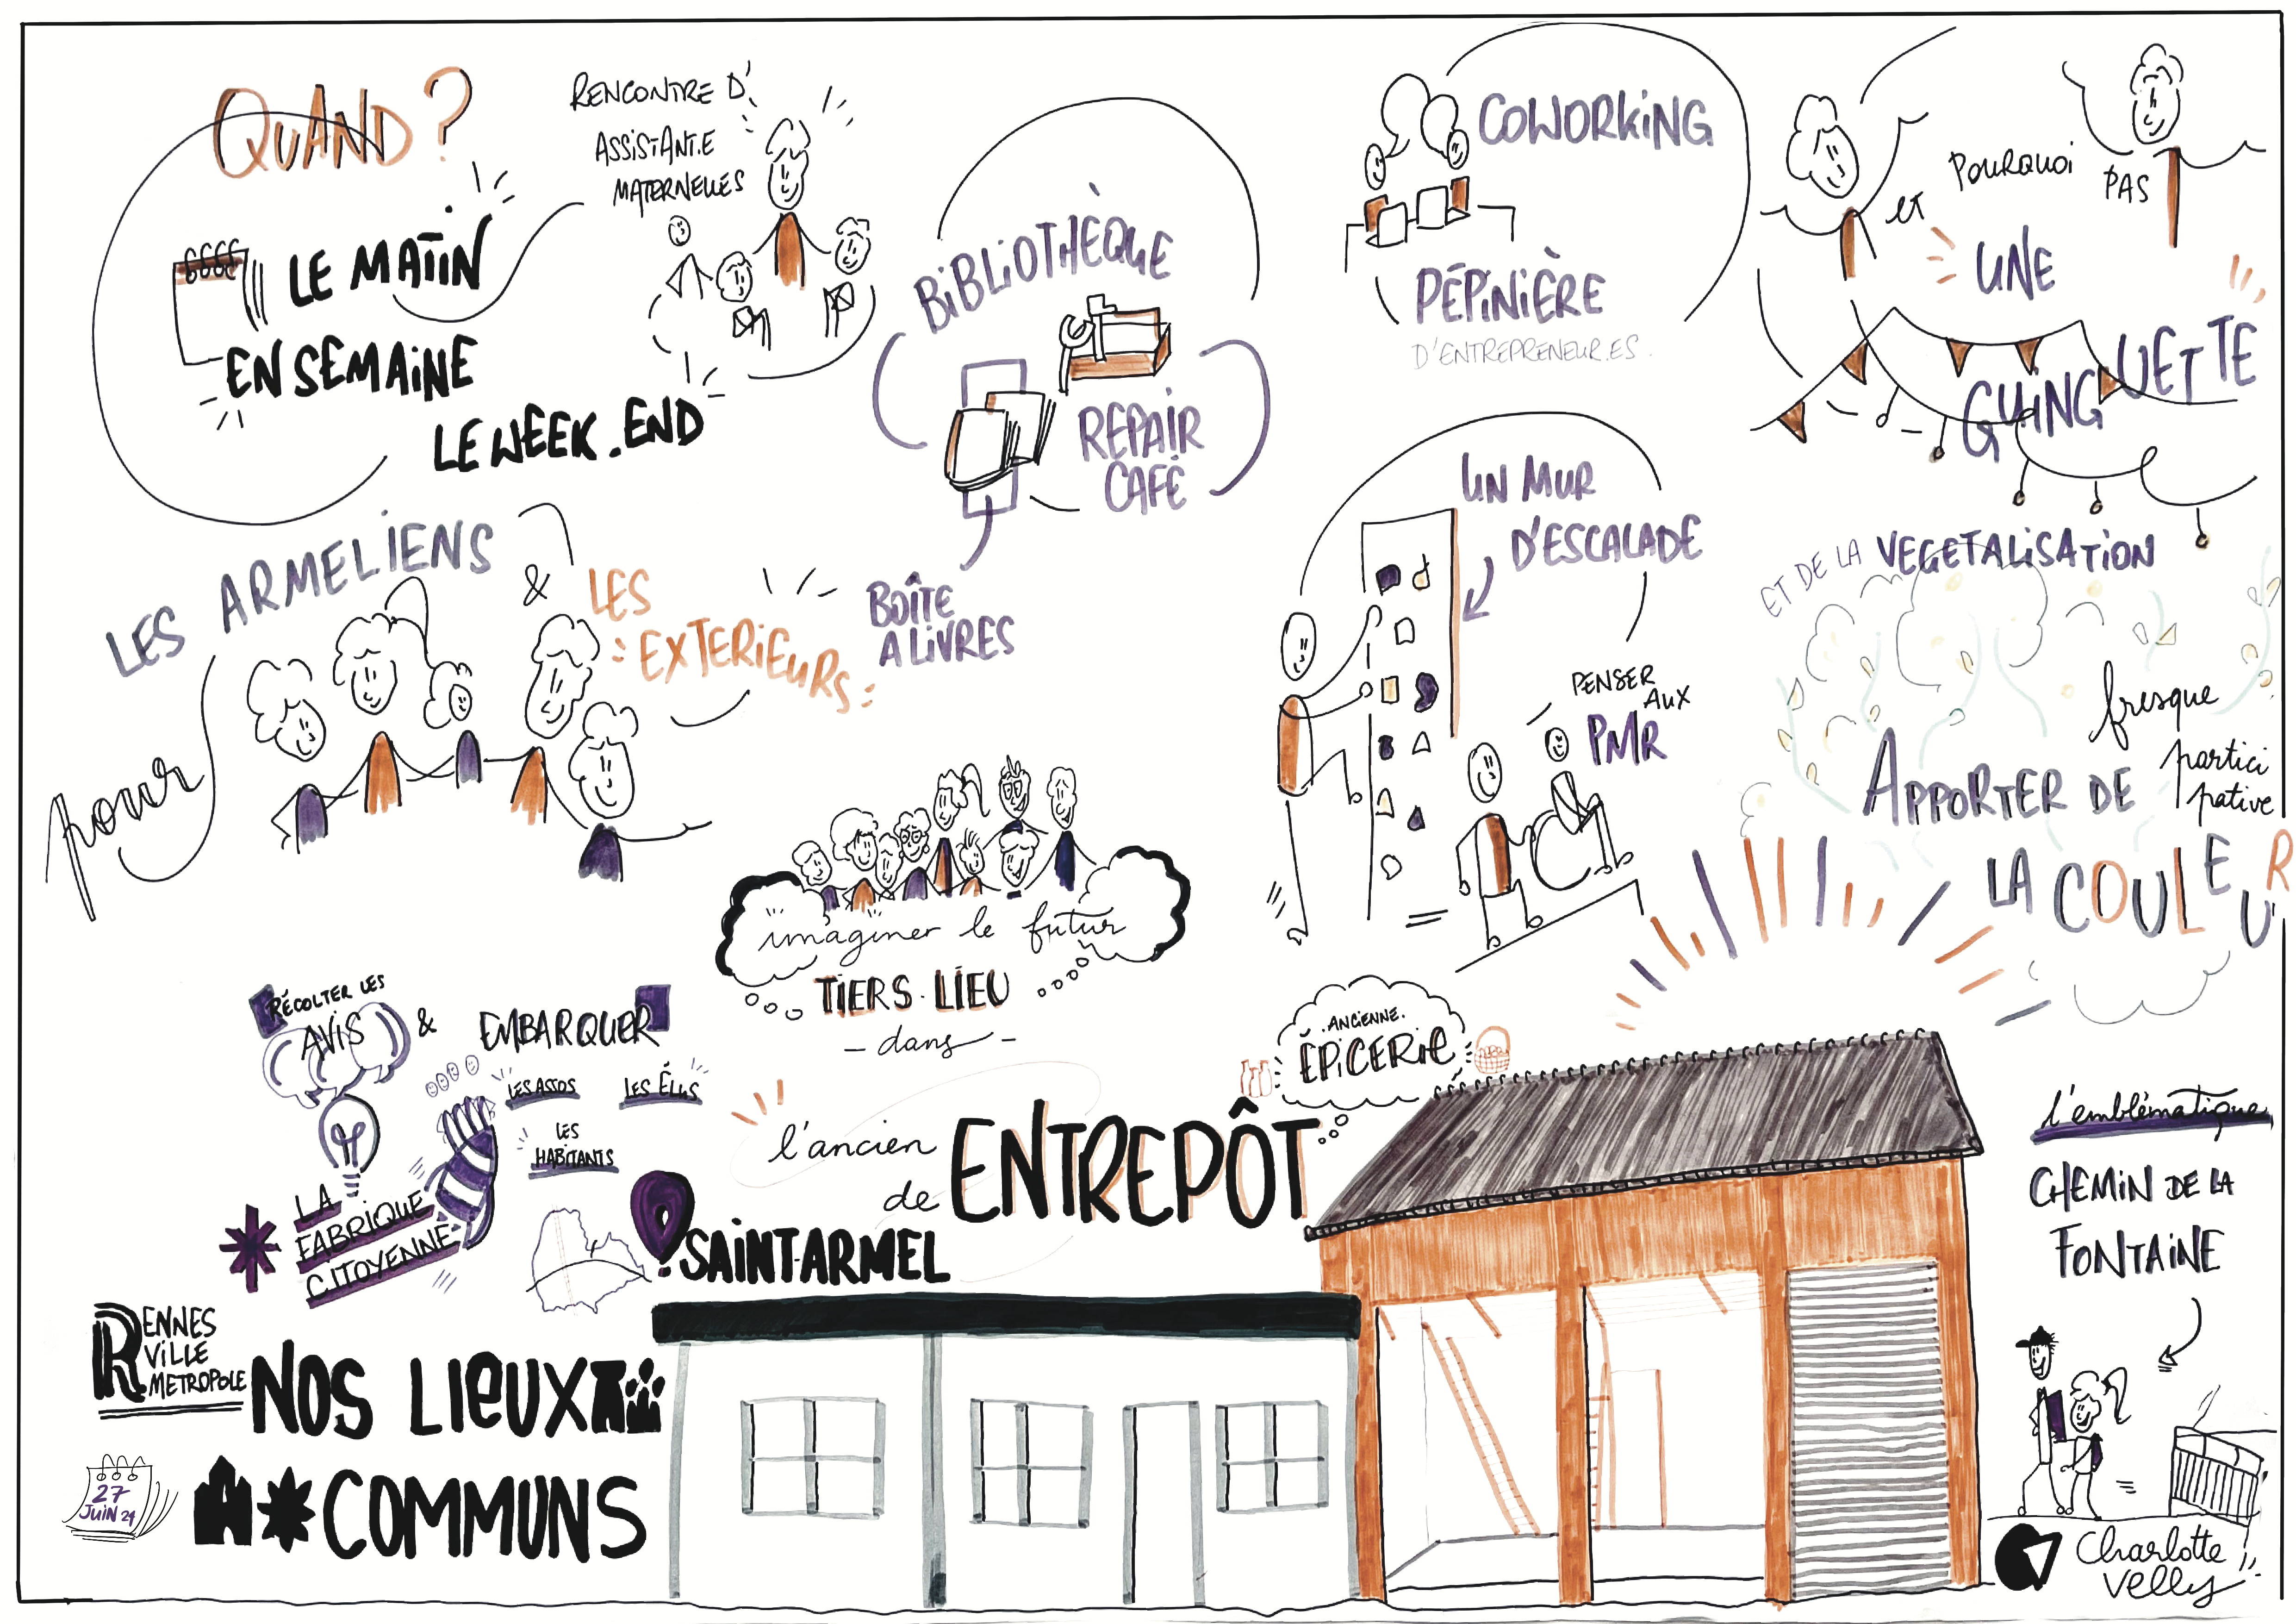 QUAND ?
LE MATIN
EN SEMAINE
LE WEEK.END
RENCONTRE D'
ASSISTANT.E
MATERNELLES
BIBLIOTHÈQUE
REPAIR
CAFÉ
BOÎTE
A LIVRES
COWORKING
PÉPINIÈRE
D'ENTREPRENEUR.ES.
et POURQUOI
PAS
UNE
GUINGUETTE
pour
LES ARMELIENS
&
LES
EXTERIEURS
UN MUR
D'ESCALADE
PENSER
AUX
PMR
ET DE LA VEGETALISATION
fresque
partici
pative
APPORTER DE
LA COULEUR
imaginer le futur
TIERS.LIEU
- dans -
l'ancien
de ENTREPÔT
SAINT-ARMEL
.ANCIENNE.
ÉPICERIE
RÉCOLTER LES
AVIS
& EMBARQUER
LES ASSOS
LES ÉLUS
LES
HABITANTS
LA
FABRIQUE
CITOYENNE
RENNES
VILLE
METROPOLE
NOS LIEUX
COMMUNS
27
JUIN 24
l'emblématique
CHEMIN DE LA
FONTAINE
Charlotte
Velly